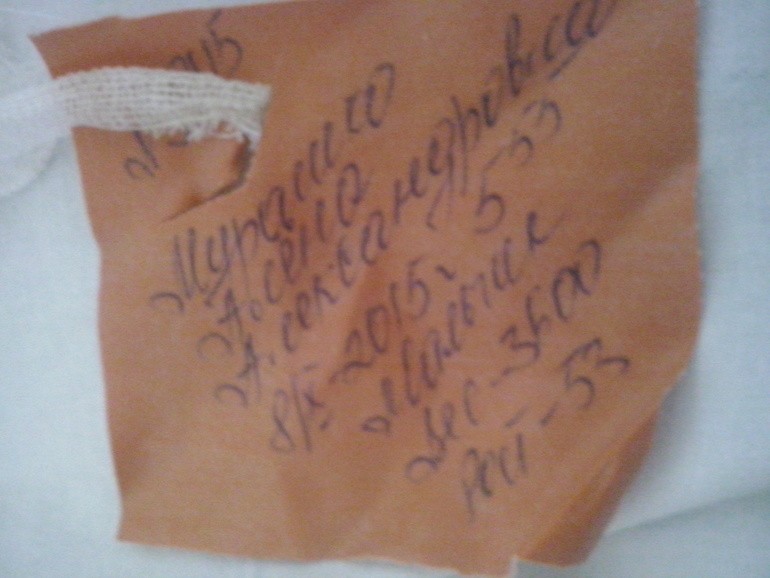 Мурашко
Алена
Александровна
8/X-2015г 5 53
Мальчик
Вес-3600
Рост-53